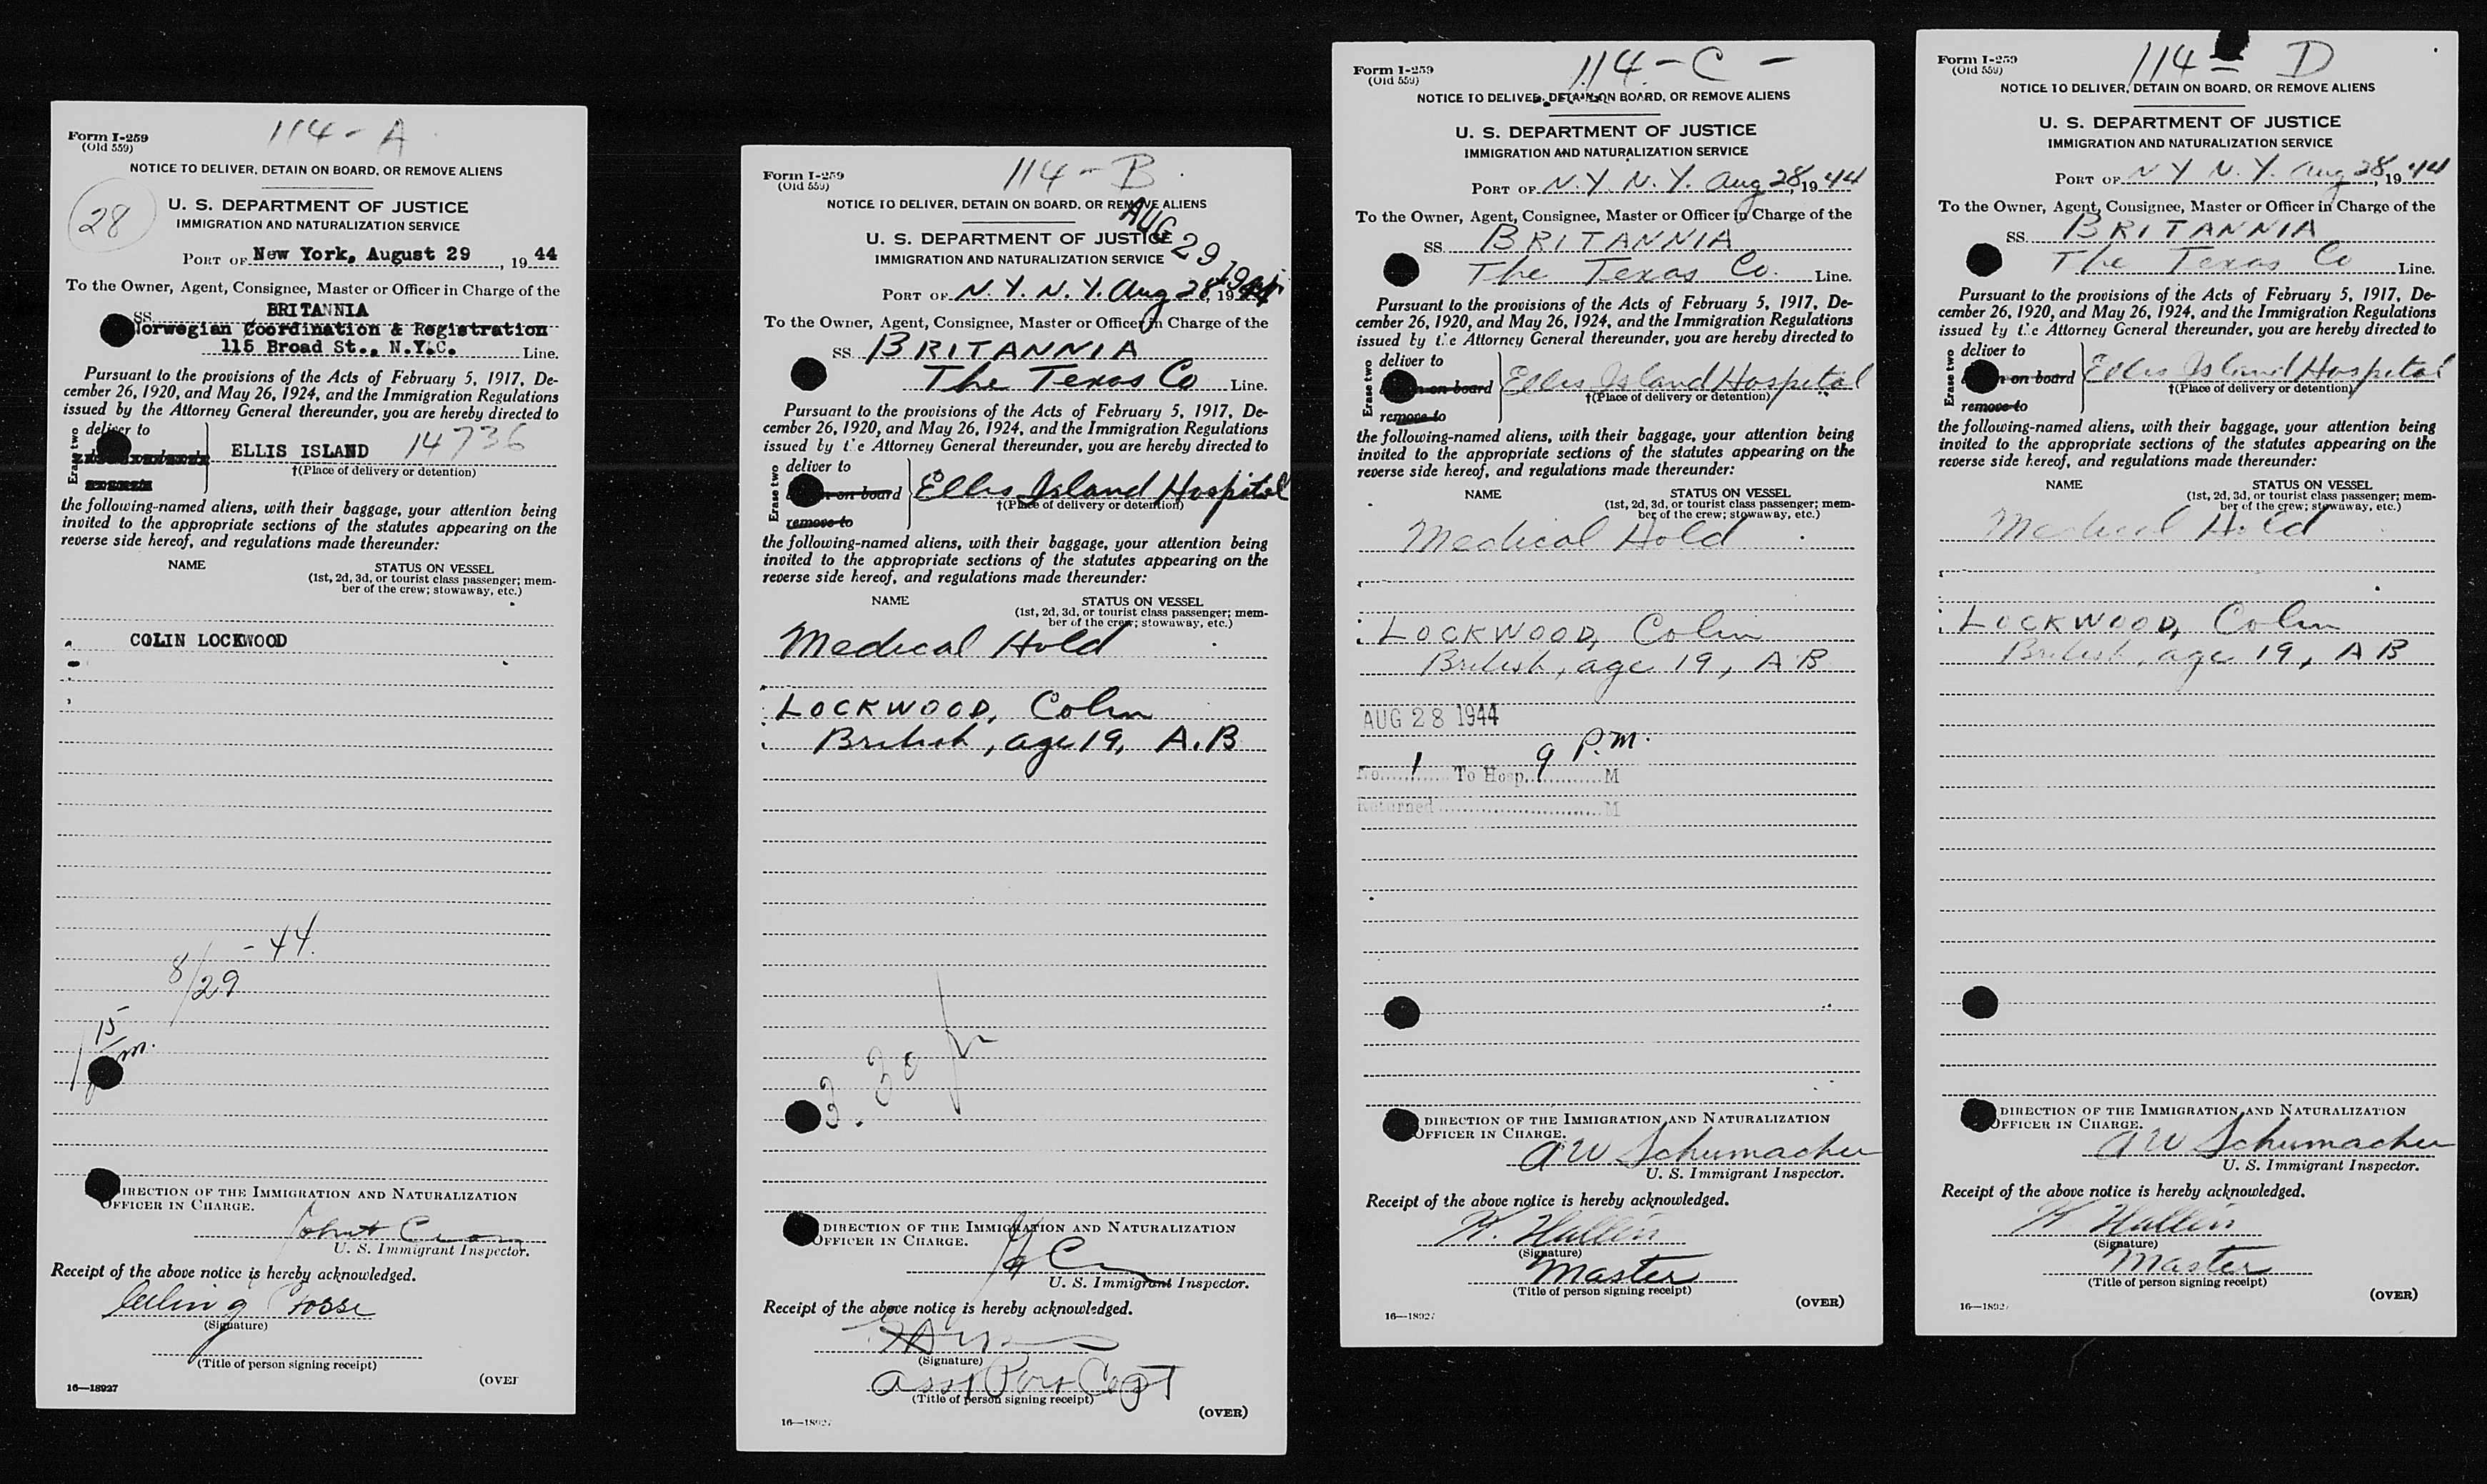 114 - A
Form I-259
(Old 559)
NOTICE TO DELIVER, DETAIN ON BOARD, OR REMOVE ALIENS
28
U. S. DEPARTMENT OF JUSTICE
IMMIGRATION AND NATURALIZATION SERVICE
PORT OF New York, August 29, 19 44
To the Owner, Agent, Consignee, Master or Officer in Charge of the
SS. BRITANNIA
Norwegian Coordination & Registration
115 Broad St., N.Y.C. Line.
Pursuant to the provisions of the Acts of February 5, 1917, De-
cember 26, 1920, and May 26, 1924, and the Immigration Regulations
issued by the Attorney General thereunder, you are hereby directed to
Erase two
deliver to
ELLIS ISLAND 14736
†(Place of delivery or detention)
the following-named aliens, with their baggage, your attention being
invited to the appropriate sections of the statutes appearing on the
reverse side hereof, and regulations made thereunder:
NAME STATUS ON VESSEL
(1st, 2d, 3d, or tourist class passenger; mem-
ber of the crew; stowaway, etc.)
COLIN LOCKWOOD
8/29 - 44.
1 15 m.
DIRECTION OF THE IMMIGRATION AND NATURALIZATION
OFFICER IN CHARGE.
U. S. Immigrant Inspector.
Receipt of the above notice is hereby acknowledged.
(Signature)
(Title of person signing receipt)
(OVER
16—18927
114 - B
Form I-259
(Old 559)
NOTICE TO DELIVER, DETAIN ON BOARD, OR REMOVE ALIENS
AUG 29 1944
U. S. DEPARTMENT OF JUSTICE
IMMIGRATION AND NATURALIZATION SERVICE
PORT OF N. Y. N. Y. Aug 28, 19 44
To the Owner, Agent, Consignee, Master or Officer in Charge of the
SS BRITANNIA
The Texas Co Line.
Pursuant to the provisions of the Acts of February 5, 1917, De-
cember 26, 1920, and May 26, 1924, and the Immigration Regulations
issued by the Attorney General thereunder, you are hereby directed to
Erase two
deliver to
on board
remove to
Ellis Island Hospital
†(Place of delivery or detention)
the following-named aliens, with their baggage, your attention being
invited to the appropriate sections of the statutes appearing on the
reverse side hereof, and regulations made thereunder:
NAME STATUS ON VESSEL
(1st, 2d, 3d, or tourist class passenger; mem-
ber of the crew; stowaway, etc.)
Medical Hold
LOCKWOOD, Colin
British, age 19, A.B
3.30 p
DIRECTION OF THE IMMIGRATION AND NATURALIZATION
OFFICER IN CHARGE.
U. S. Immigrant Inspector.
Receipt of the above notice is hereby acknowledged.
(Signature)
Asst Port Capt
(Title of person signing receipt)
(OVER)
16—18927
114 - C -
Form I-259
(Old 559)
NOTICE TO DELIVER, DETAIN ON BOARD, OR REMOVE ALIENS
U. S. DEPARTMENT OF JUSTICE
IMMIGRATION AND NATURALIZATION SERVICE
PORT OF N. Y. N. Y. Aug 28, 19 44
To the Owner, Agent, Consignee, Master or Officer in Charge of the
SS. BRITANNIA
The Texas Co. Line.
Pursuant to the provisions of the Acts of February 5, 1917, De-
cember 26, 1920, and May 26, 1924, and the Immigration Regulations
issued by the Attorney General thereunder, you are hereby directed to
Erase two
deliver to
on board
remove to
Ellis Island Hospital
†(Place of delivery or detention)
the following-named aliens, with their baggage, your attention being
invited to the appropriate sections of the statutes appearing on the
reverse side hereof, and regulations made thereunder:
NAME STATUS ON VESSEL
(1st, 2d, 3d, or tourist class passenger; mem-
ber of the crew; stowaway, etc.)
Medical Hold
LOCKWOOD, Colin
British, age 19, A B
AUG 28 1944
No. 1 To Hosp. 9 P.m. M
Returned M
DIRECTION OF THE IMMIGRATION AND NATURALIZATION
OFFICER IN CHARGE.
A W Schumacher
U. S. Immigrant Inspector.
Receipt of the above notice is hereby acknowledged.
H. Hallén
(Signature)
Master
(Title of person signing receipt)
(OVER)
16—18927
114 - D
Form I-259
(Old 559)
NOTICE TO DELIVER, DETAIN ON BOARD, OR REMOVE ALIENS
U. S. DEPARTMENT OF JUSTICE
IMMIGRATION AND NATURALIZATION SERVICE
PORT OF N Y N. Y. Aug 28, 19 44
To the Owner, Agent, Consignee, Master or Officer in Charge of the
SS. BRITANNIA
The Texas Co Line.
Pursuant to the provisions of the Acts of February 5, 1917, De-
cember 26, 1920, and May 26, 1924, and the Immigration Regulations
issued by the Attorney General thereunder, you are hereby directed to
Erase two
deliver to
on board
remove to
Ellis Island Hospital
†(Place of delivery or detention)
the following-named aliens, with their baggage, your attention being
invited to the appropriate sections of the statutes appearing on the
reverse side hereof, and regulations made thereunder:
NAME STATUS ON VESSEL
(1st, 2d, 3d, or tourist class passenger; mem-
ber of the crew; stowaway, etc.)
Medical Hold
LOCKWOOD, Colin
British, age 19, A B
DIRECTION OF THE IMMIGRATION AND NATURALIZATION
OFFICER IN CHARGE.
A W Schumacher
U. S. Immigrant Inspector.
Receipt of the above notice is hereby acknowledged.
H Hallén
(Signature)
Master
(Title of person signing receipt)
(OVER)
16—18927